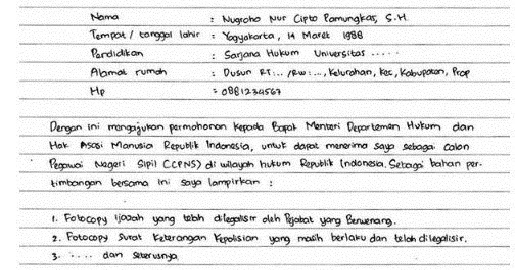 Nama : Nugroho Nur Cipto Pamungkas, S.H.
Tempat / tanggal lahir : Yogyakarta, 14 Maret 1988
Pendidikan : Sarjana Hukum Universitas .....
Alamat rumah : Dusun RT:... /RW:..., Kelurahan, Kec, Kabupaten, Prop
Hp : 0881234567
Dengan ini mengajukan permohonan kepada Bapak Menteri Departemen Hukum dan
Hak Asasi Manusia Republik Indonesia, untuk dapat menerima saya sebagai Calon
Pegawai Negeri Sipil (CPNS) di wilayah hukum Republik Indonesia. Sebagai bahan per-
timbangan bersama ini saya lampirkan :
1. Fotocopy Ijazah yang telah dilegalisir oleh Pejabat yang Berwenang.
2. Fotocopy Surat Keterangan Kepolisian yang masih berlaku dan telah dilegalisir.
3. ..... dan seterusnya